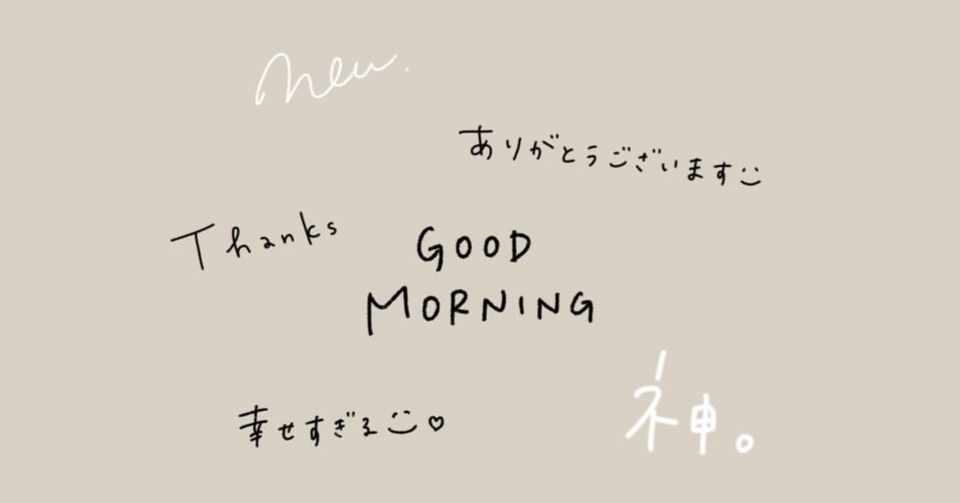 new.
ありがとうございます
Thanks
GOOD
MORNING
幸せすぎる♡
神。